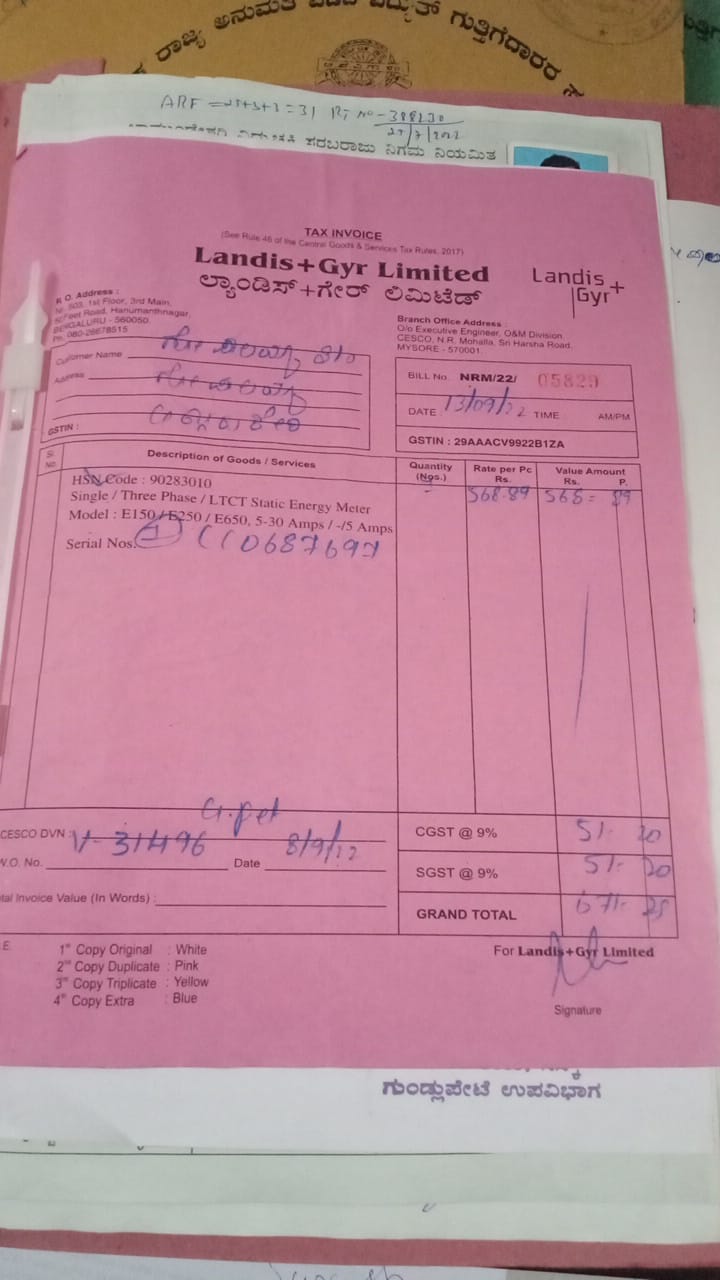 ರಾಜ್ಯ ಅನುಮತಿ ಪಡೆದ ವಿದ್ಯುತ್ ಗುತ್ತಿಗೆದಾರರ
ARF = 25+3+3 = 31 R, No - 388230
ವಿದ್ಯುಚ್ಛಕ್ತಿ ಸರಬರಾಜು ನಿಗಮ ನಿಯಮಿತ
TAX INVOICE
(See Rule 46 of the Central Goods & Services Tax Rules, 2017)
Landis+Gyr Limited
ಲ್ಯಾಂಡಿಸ್+ಗೇರ್ ಲಿಮಿಟೆಡ್
Landis+
Gyr
R. O. Address :
Nr. 503, 1st Floor, 3rd Main,
50 Feet Road, Hanumanthnagar,
BENGALURU - 560050.
Ph. 080-26678515
Branch Office Address :
O/o Executive Engineer, O&M Division,
CESCO, N.R. Mohalla, Sri Harsha Road,
MYSORE - 570001.
Customer Name
Address
GSTIN :
BILL No. NRM/22/ 05829
DATE 13/09/22 TIME AM/PM
GSTIN : 29AAACV9922B1ZA
Sl. No. Description of Goods / Services Quantity (Nos.) Rate per Pc Rs. Value Amount Rs. P.
HSN Code : 90283010 568.89 568 = 89
Single / Three Phase / LTCT Static Energy Meter
Model : E150 / E250 / E650, 5-30 Amps / -/5 Amps
Serial Nos. 1 CC0687697
G.pet
CESCO DVN : V-31496 8/9/22
W.O. No. Date
CGST @ 9% 51- 20
SGST @ 9% 51- 20
Total Invoice Value (In Words) :
GRAND TOTAL 671- 25
1st Copy Original : White
2nd Copy Duplicate : Pink
3rd Copy Triplicate : Yellow
4th Copy Extra : Blue
For Landis+Gyr Limited
Signature
ಗುಂಡ್ಲುಪೇಟೆ ಉಪವಿಭಾಗ